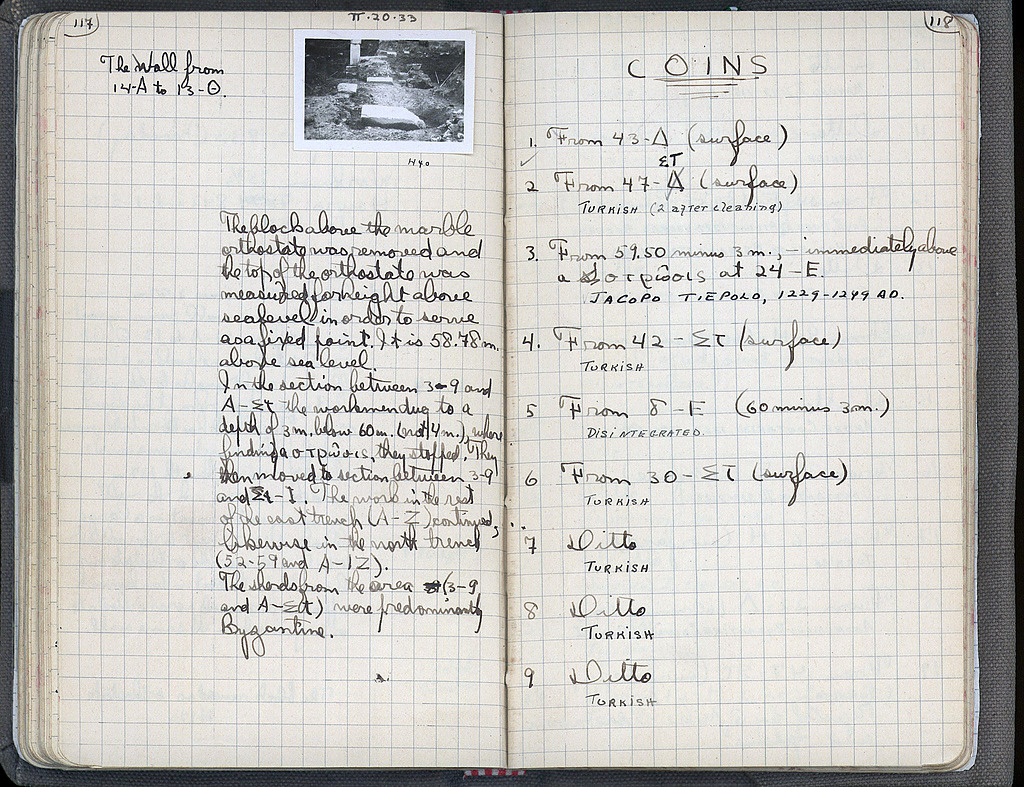 117
II·20·33
The Wall from
14-A to 13-Θ.
H40
The block above the marble
orthostate was removed and
the top of the orthostate was
measured for height above
sea level in order to serve
as a fixed point. It is 58.78 m.
above sea level.
In the section between 3-9 and
A-Στ the workmen dug to a
depth of 3 m. below 60 m. (not 4 m.), where
finding a στρῶσις, they stopped. They
then moved to section between 3-9
and Στ-I. The work in the rest
of the east trench (A-Z) continued,
likewise in the north trench
(52-59 and A-IZ).
The sherds from the area (3-9
and A-Στ) were predominantly
Byzantine.
118
COINS
1. From 43-Δ (surface)
ΣΤ
2 From 47-Δ (surface)
TURKISH (2 after cleaning)
3. From 59.50 minus 3 m., - immediately above
a στρῶσις at 24-E.
JACOPO TIEPOLO, 1229-1249 AD.
4. From 42-Στ (surface)
TURKISH
5 From 8-E (60 minus 3 m.)
DISINTEGRATED.
6 From 30-Στ (surface)
TURKISH
7 Ditto
TURKISH
8 Ditto
TURKISH
9 Ditto
TURKISH